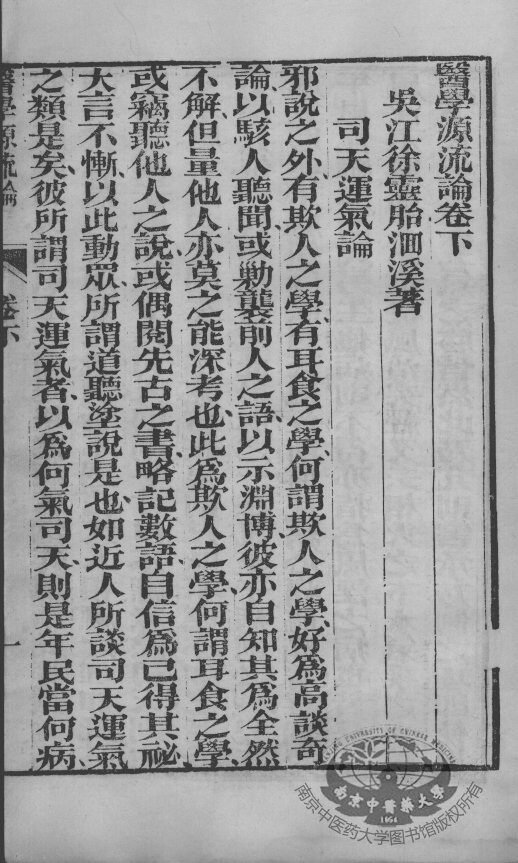 醫學源流論卷下
吳江徐靈胎洄溪著
司天運氣論
邪說之外有欺人之學有耳食之學何謂欺人之學好爲高談奇
論以駭人聽聞或勦襲前人之語以示淵博彼亦自知其爲全然
不解但量他人亦莫之能深考也此爲欺人之學何謂耳食之學
或竊聽他人之說或偶閱先古之書略記數語自信爲已得其祕
大言不慚以此動眾所謂道聽塗說是也如近人所談司天運氣
之類是矣彼所謂司天運氣者以爲何氣司天則是年民當何病
醫學源流論
卷下
一
NANJING UNIVERSITY OF CHINESE MEDICINE
南京中醫藥大學
1954
南京中医药大学图书馆版权所有